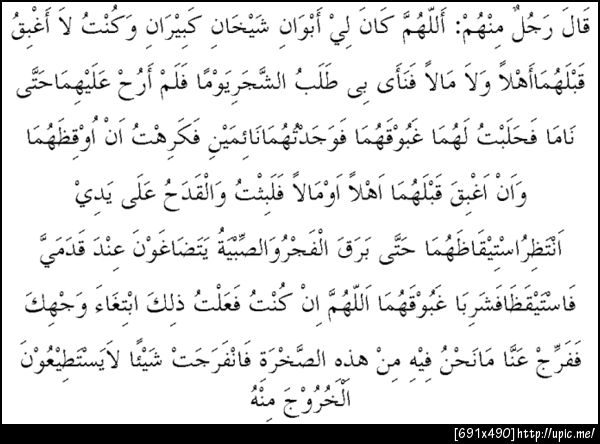 قَالَ رَجُلٌ مِنْهُمْ: أَللّهُمَّ كَانَ لِيْ أَبْوَانِ شَيْخَانِ كَبِيْرَانِ وَكُنْتُ لاَ أَغْبِقُ
قَبْلَهُمَاأَهْلاً وَلاَ مَالاً فَنَأَى بِى طَلَبُ الشَّجَرِيَوْمًا فَلَمْ أَرُحْ عَلَيْهِمَاحَتَّى
نَامَا فَحَلَبْتُ لَهُمَا غَبُوْقَهُمَا فَوَجَدْتُهُمَانَائِمَيْنِ فَكَرِهْتُ اَنْ اُوْقِظَهُمَا
وَاَنْ اَغْبِقَ قَبْلَهُمَا اَهْلاً اَوْمَالاً فَلَبِثْتُ وَالْقَدَحُ عَلَى يَدِيْ
اَنْتَظِرُاسْتِيْقَاظَهُمَا حَتَّى بَرَقَ الْفَجْرُوَالصِّبْيَةُ يَتَضَاغَوْنَ عِنْدَ قَدَمَيَّ
فَاسْتَيْقَظَافَشَرِبَا غَبُوْقَهُمَا اَللّهُمَّ اِنْ كُنْتُ فَعَلْتُ ذلِكَ ابْتِغَاءَ وَجْهِكَ
فَفَرِّجْ عَنَّا مَانَحْنُ فِيْهِ مِنْ هذِهِ الصَّخْرَةِ فَانْفَرَجَتْ شَيْئًا لاَيَسْتَطِيْعُوْنَ
اَلْخُرُوْجَ مِنْهُ
[691x490]http://upic.me/